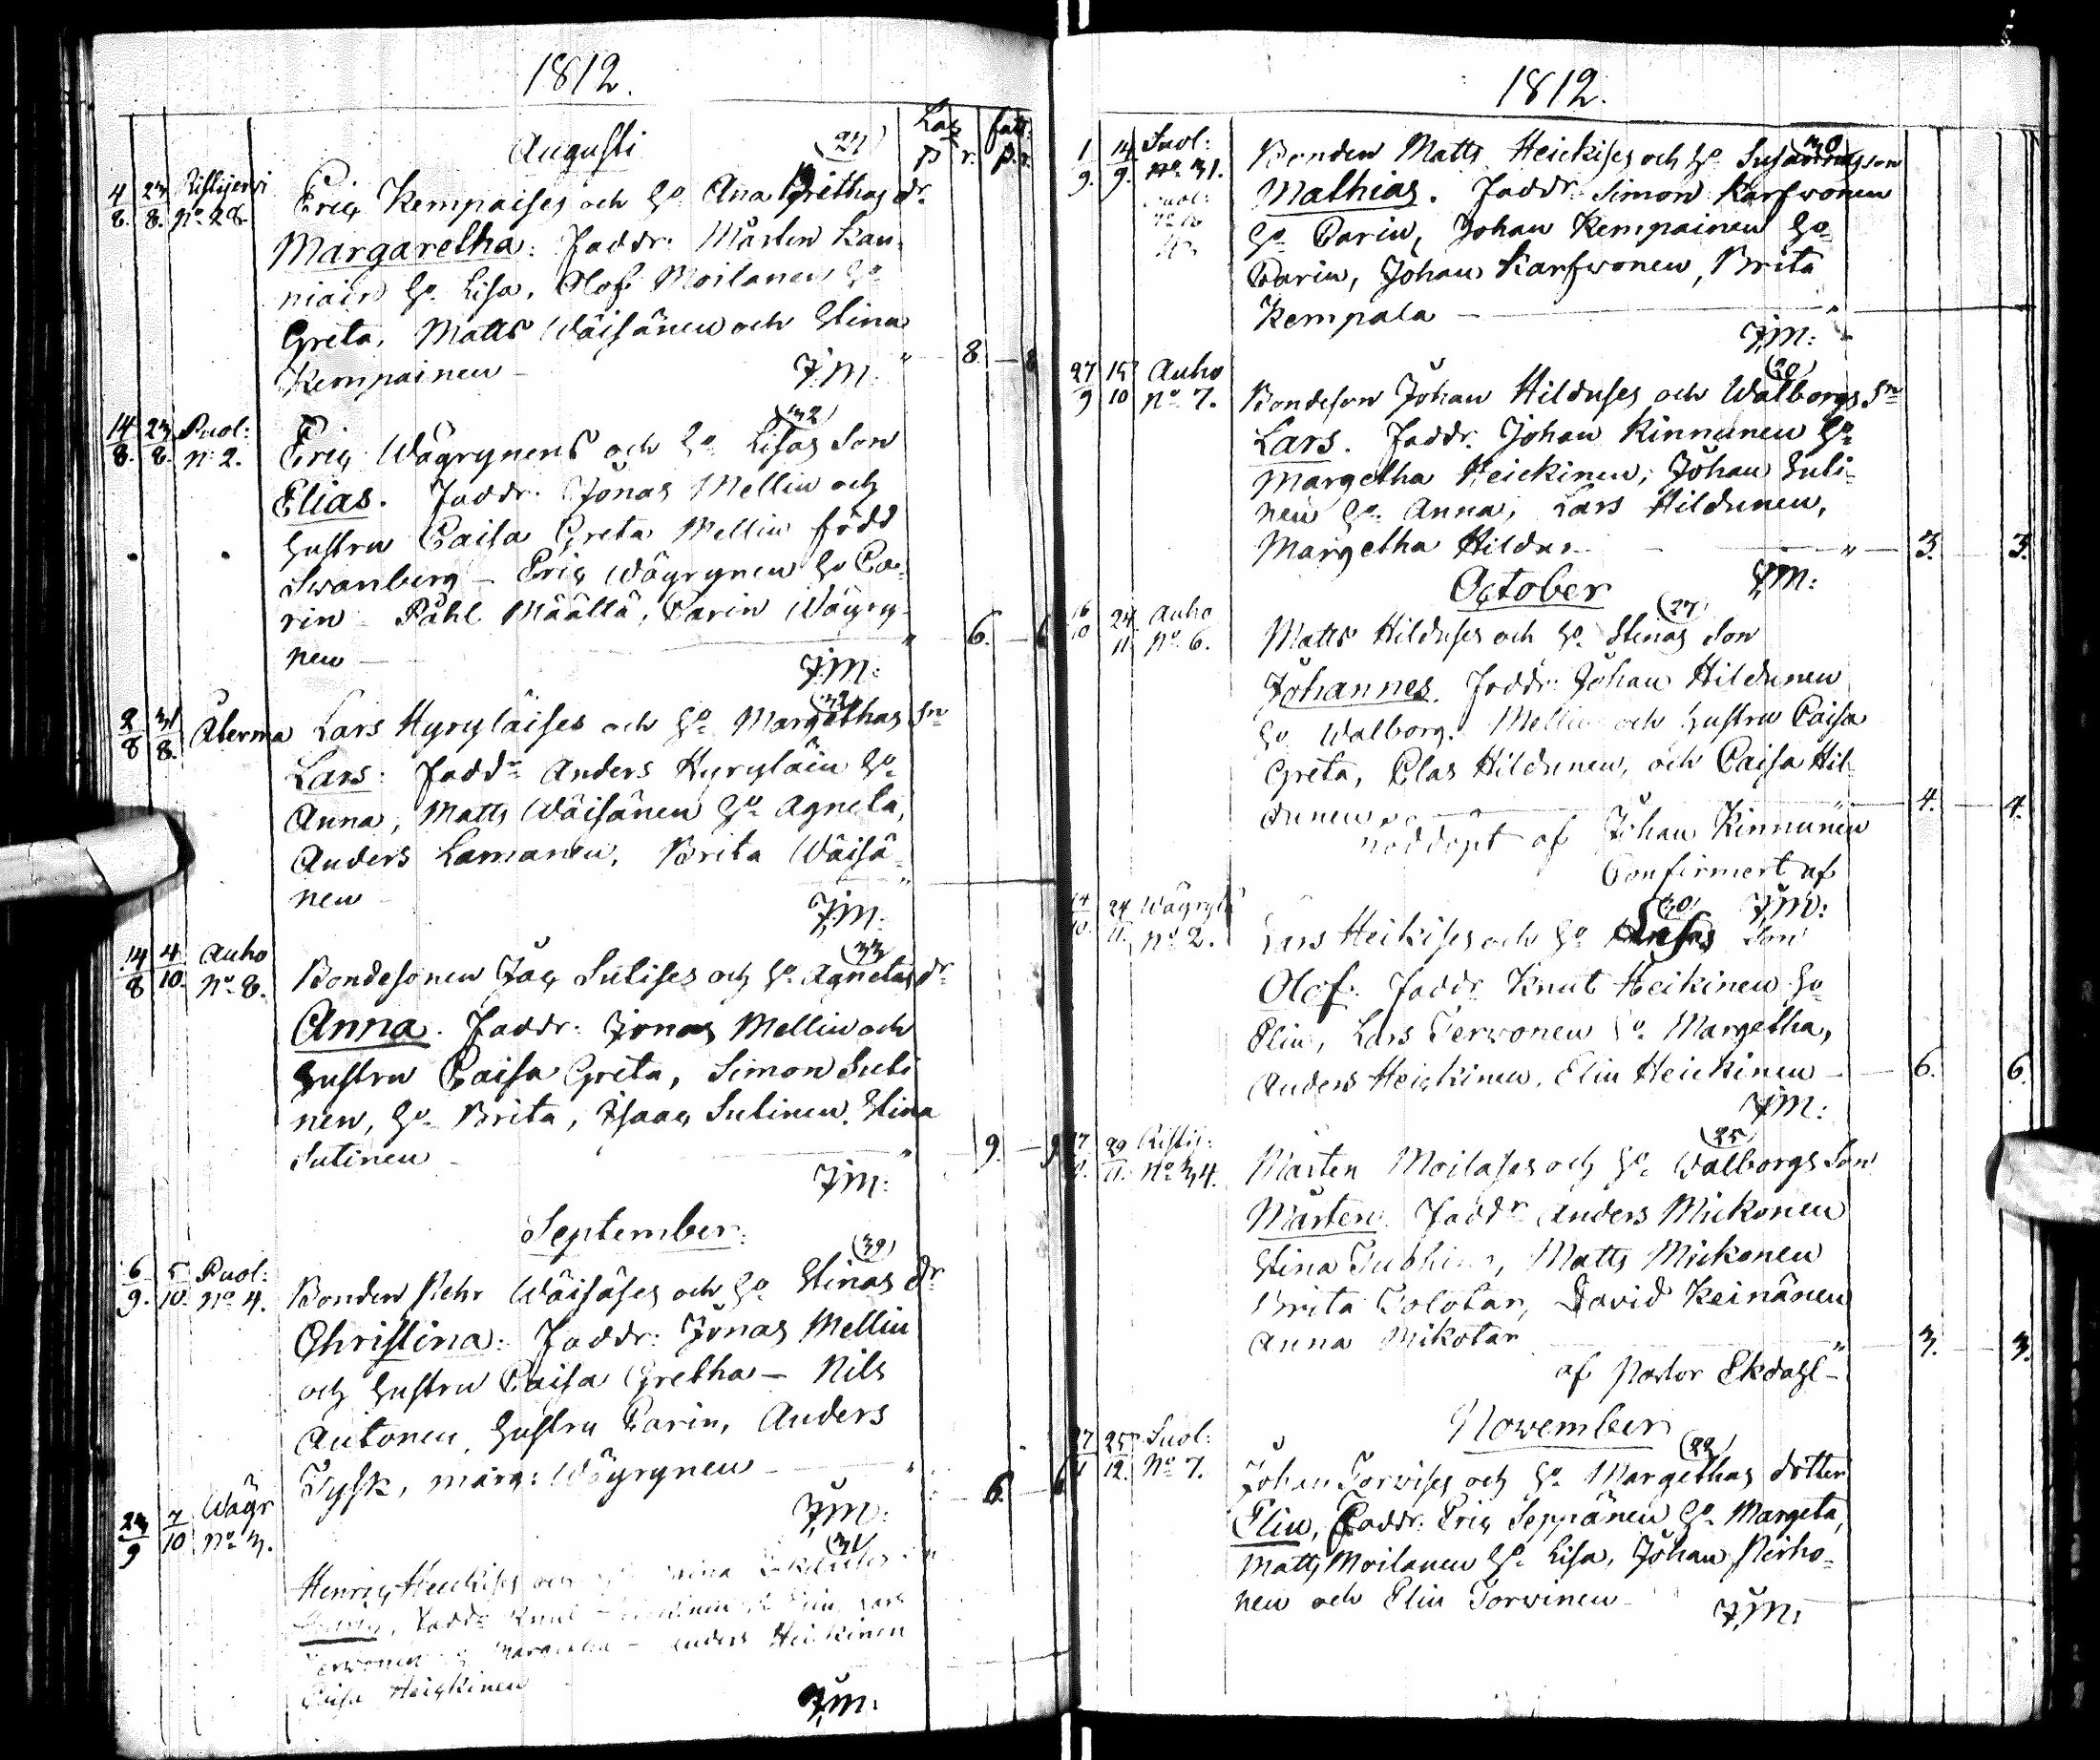 1812.
Augusti
Lag fatt:
p r. p. r.
(27)
4/8. 23/8. Ristijervi No 28.
Eriq Kempaises och Ho Ana Grethas dr
Margaretha: Faddr: Mårten Kau-
niain Ho Lisa, Olof Moilanen Ho
Greta, Matts Wäisänen och Stina
Kempainen — " 8. — 8
J:M:
(32)
14/8. 23/8. Puol: No 2.
Eriq Wägrynens och Ho Lisas Son
Elias. Faddr: Jonas Mellin och
Hustru Caisa Greta Mellin född
Swanberg — Eriq Wägrynen Ho Ca-
rin Påhl Määttä, Carin Wägry-
nen — " 6. — 6
J:M:
(32)
2/8 31/8. Aterma Lars Hyryläises och Ho Margethas Sn
Lars: Faddr Anders Hyryläin Ho
Anna, Matts Wäisänen Ho Agneta,
Anders Lamanen, Brita Wäisä-
nen "
J:M:
(33)
14/8 4/10. Auho No 8.
Bondesonen Jaq Sutises och Ho Agnetas dr
Anna. Faddr: Jonas Mellin och
Hustru Caisa Greta, Simon Suti
nen, Ho Brita, Isaac Sutinen, Stina
Sutinen — " 9. — 9
J:M:
September:
(39)
6/9. 5/10. Puol: No 4.
Bonden Pehr Wäisäses och Ho Stinas dr
Christina: Faddr: Jonas Mellin
och Hustru Caisa Gretha — Nils
Antonen, Hustru Carin, Anders
Tysk, marg: Wägrynen — " 6. — 6
J:M:
(31)
23/9 7/10 Wägr No 3.
Henriq Heickises
Faddr Knut
Anders Heickinen
Caisa Heickinen
J:M:
1812.
(30)
1/9. 14/9. Suol: No 31.
Bonden Matts Heickises och Ho Susannas son
Mathias. Faddr: Simon Karfwonen
Ho Carin, Johan Kempainen Ho
Carin, Johan Karfwonen, Brita
Kempala — "
J:M:
(20)
27/9 15/10 Auho No 7.
Bondeson Johan Hilduses och Walborgs Sn
Lars. Faddr: Johan Kinnunen Ho
Margetha Heickinen, Johan Suti-
nen Ho Anna, Lars Hildunen,
Margetha Hildu — " — 3. — 3.
J:M:
October
(27)
16/10 24/11 Auho No 6.
Matts Hilduses och Ho Stinas Son
Johannes. Faddr: Johan Hildunen
Ho Walborg. Mellin och Hustru Caisa
Greta, Clas Hildunen, och Caisa Hil-
dunen — " — 4. — 4.
nöddöpt af Johan Kinnunen
Confirmert af
J:M:
(30)
14/10. 24/11. Wägrylä No 2.
Lars Heikises och Ho Son
Olof. Faddr Knut Heikinen Ho
Elin, Lars Terwonen Ho Margetha,
Anders Heickinen, Elin Heickinen — 6. 6.
J:M:
(25)
29/11. Ristij: No 34.
Mårten Moilases och Ho Walborgs Son
Mårten. Faddr Anders Mickonen
Stina, Matts Mickonen
Brita Kolotar, David Keinänen
Anna Mikotar — " 3. — 3.
af Pastor Ekdahl —
November
(22)
27/11 25/12. Suol: No 7.
Johan Torwises och Ho Margethas dotter
Elin, Faddr: Eriq Seppänen Ho Margeta,
Matts Moilanen Ho Lisa, Johan Pirho-
nen och Elin Torwinen
J:M: